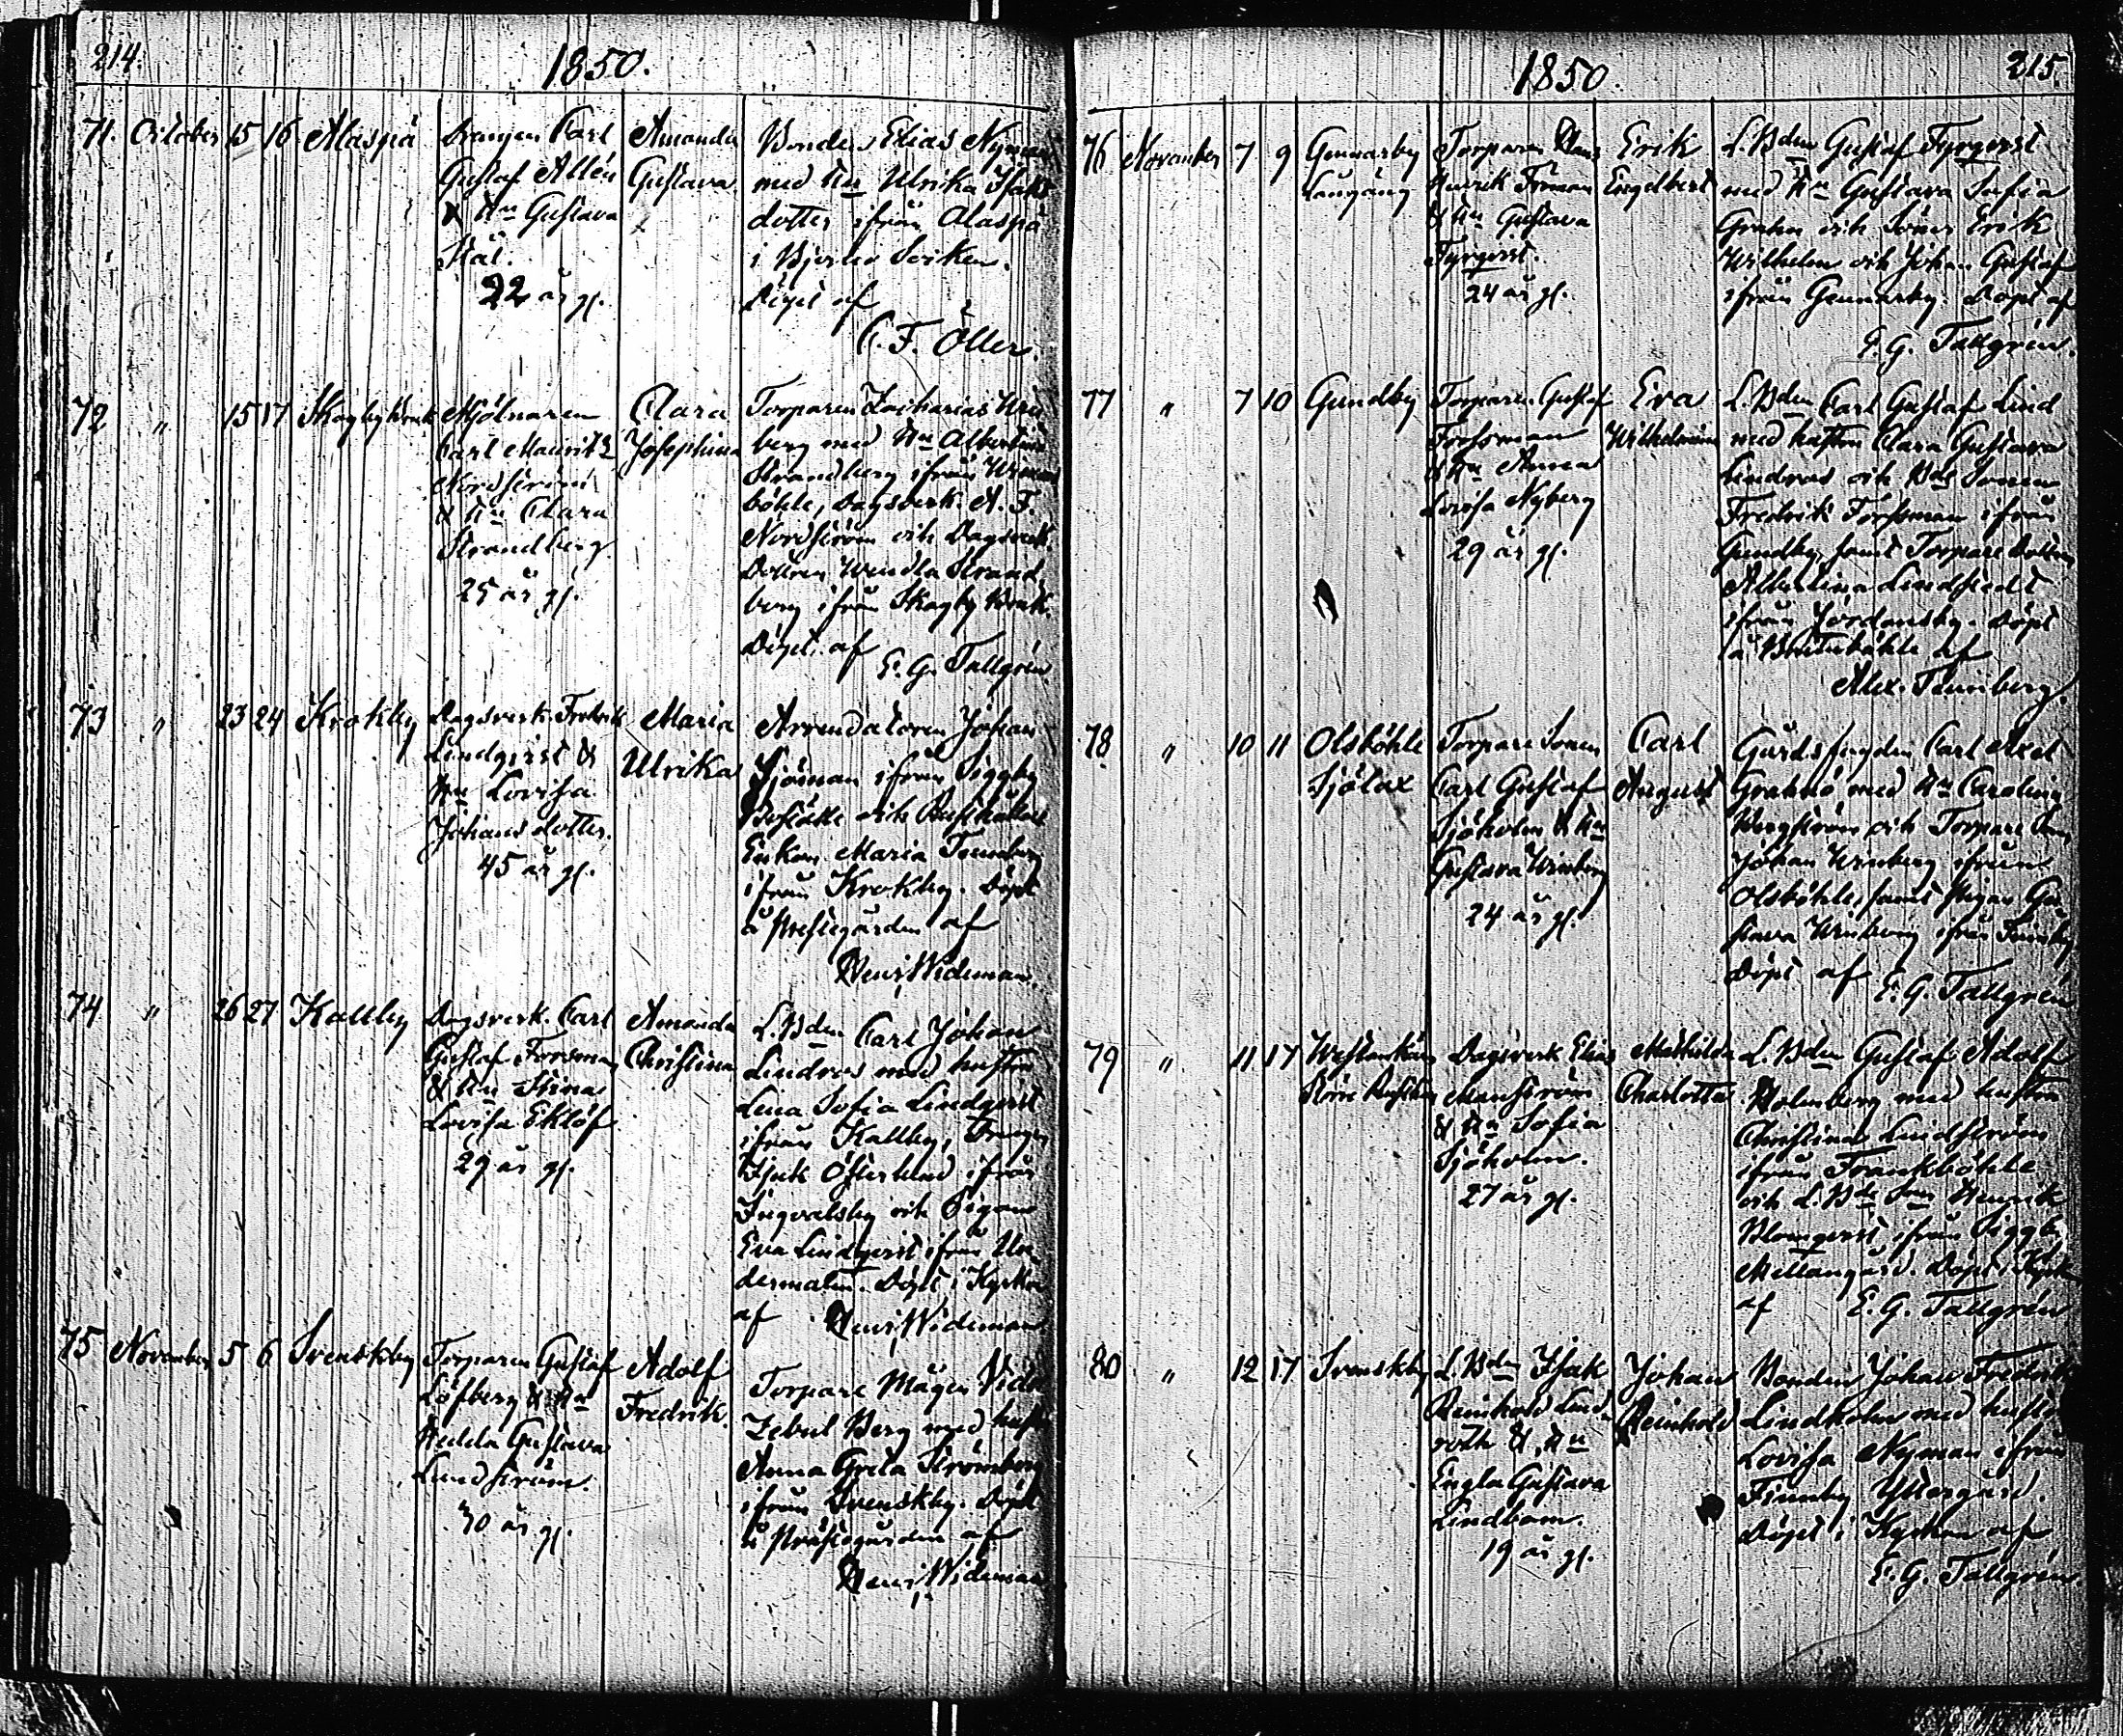 214.
1850.
71. October 15 16 Alaspä
Drengen Carl
Gustaf Allén
& Hu Gustava
Stål.
22 år gl.
Amanda
Gustava
Bonden Elias Nyman
med Hu Ulrika Isaks
dotter ifrån Alaspä
i Bjerno Socken.
Döpt af
C. F. Öller.
72 " 15 17 Skogby Bruk
Mjölnaren
Carl Mauritz
Nordström
& Hu Clara
Strandberg
25 år gl.
Clara
Josephina
Torparen Zacharias
berg med Hu Albertina
Strandberg ifrån
böhle, Dagsverk. A. F.
Nordström och Dagsverk.
Dottren Wendla Strand
berg ifrån Skogby Bruk.
Döpt af
E. G. Tallgrén
73 " 23 24 Krokby
Dagsverk. Fredrik
Lindqvist &
Hu Lovisa
Johansdotter.
45 år gl.
Maria
Ulrika
Arrendatoren Johan
Sjöman ifrån Siggby
och
Enkan Maria
ifrån Krokby. Döpt
å Prestegården af
Henr. Wideman.
74 " 26 27 Kallby
Dagsverk. Carl
Gustaf Forsman
& Hu Stina
Lovisa Eklöf
29 år gl.
Amanda
Christina
L. Bden Carl Johan
Lindros med hustru
Lena Sofia Lindqvist
ifrån Kallby, Dreng
Österlund ifrån
Ingvalsby och Pigan
Eva Lindqvist ifrån Un
dermalm. Döpt i Kyrkan
af Henr. Wideman
75 November 5 6 Svenskby
Torparen Gustaf
Löfberg & Hu
Hedda Gustava
Lundström.
30 år gl.
Adolf
Fredrik.
Torpare Mågen
Berg med hustru
Anna Greta Strömberg
ifrån Svenskby. Döpt
å Prästegården af
Henr. Wideman
1850.
215.
76 November 7 9 Gennarby
Torparen Hans
Henrik Forman
& Hu Gustava
Fyrqvist.
24 år gl.
Erik
Engelbert
L. Bden Gustaf Fyrqvist
med Hu Gustava Sofia
Grahn och Söner Erik
Wilhelm och Johan Gustaf
ifrån Gennarby. Döpt af
E. G. Tallgrén.
77 " 7 10 Gundby
Torparen Gustaf
Forssman
& Hu Anna
Lovisa Nyberg
29 år gl.
Eva
Wilhelmina
L. Bden Carl Gustaf Lind
med hustru Clara Gustava
Lindros och Bde Sonen
Fredrik Forssman ifrån
Gundby, samt Torpare Dottren
Albertina Lindstedt
ifrån Jordansby. Döpt
å af
Alex. Tennberg
78 " 10 11 Olsböhle
Sjölax
Torpare Sonen
Carl Gustaf
Sjöholm & Hu
Gustava Wrinberg
24 år gl.
Carl
August
Gårdsfogden Carl Axel
Grahnö med Hu Carolina
Bergström och Torpare Son
Johan Wrinberg ifrån
Olsböhle, samt Pigan Gu
stava Wrinberg ifrån
Döpt af E. G. Tallgrén
79 " 11 17
Dagsverk Elias
Manström
& Hu Sofia
Sjöholm.
27 år gl.
Mathilda
Charlotta
L. Bden Gustaf Adolf
Holmberg med hustru
Christina Lindström
ifrån Frankböhle
och L. Bde Son Henrik
Blomqvist ifrån Siggby
Mellangård. Döpt i Kyrk.
af E. G. Tallgrén
80 " 12 17 Svenskby
L. Bden Isak
Reinhold Lind
roth & Hu
Engla Gustava
Lindbom.
19 år gl.
Johan
Reinhold
Bonden Johan Fredrik
Lindholm med hustru
Lovisa Nyman ifrån
Finnby Yttergård.
Döpt i Kyrkan af
E. G. Tallgrén.